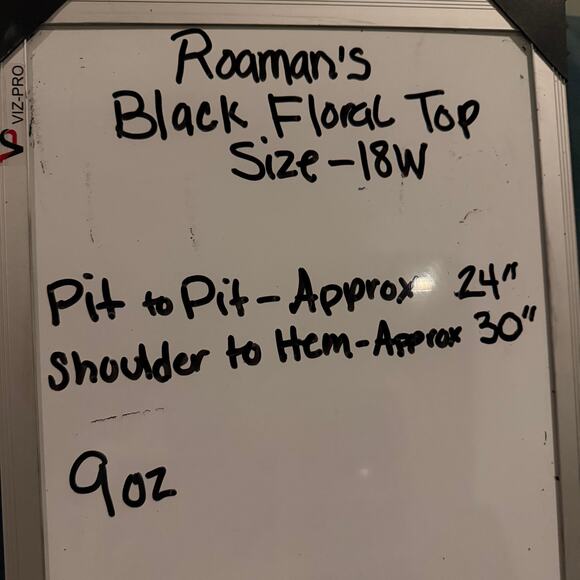 VIZ-PRO
Roaman's
Black Floral Top
Size-18W
Pit to Pit-Approx 24"
Shoulder to Hem-Approx 30"
9oz